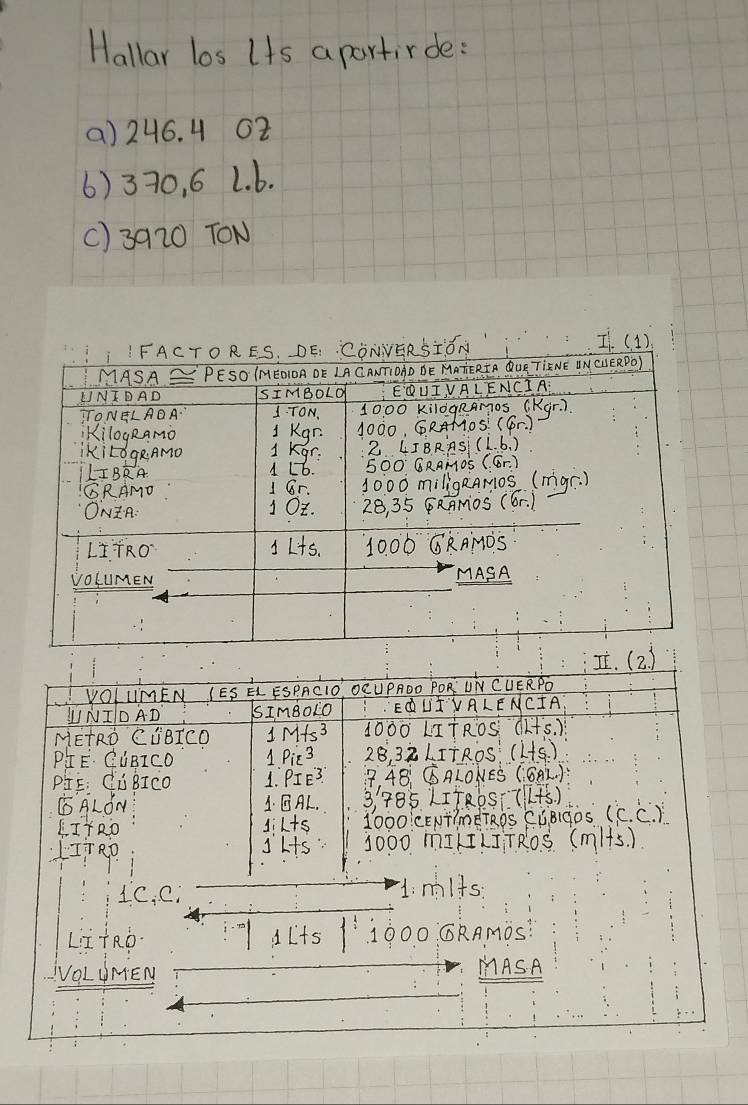 Hallar los Lts apartir de:
a) 246.4 OZ
b) 370,6 L.b.
c) 3920 TON
FACTORES DE CONVERSIÓN I. (1)
MASA ≅ PESO (MEDIDA DE LA CANTIDAD DE MATERIA QUE TIENE UN CUERPO)
UNIDAD SIMBOLO EQUIVALENCIA
TONELADA 1 TON. 1000 KilogRAMos (Kgr.)
KilogRAMO 1 Kgr. 1000, GRAMOS (Gr.)
KilogRAMO 1 Kgr. 2 LIBRAS (L.b.)
LIBRA 1 Lb. 500 GRAMOS (Gr.)
GRAMO 1 Gr. 1000 miligRAMOS (mgr.)
ONZA 1 Oz. 28,35 GRAMOS (Gr.)
LITRO 1 Lts. 1000 GRAMOS
VOLUMEN MASA
II. (2.)
VOLUMEN (ES EL ESPACIO OCUPADO POR UN CUERPO
UNIDAD SIMBOLO EQUIVALENCIA
METRO CÚBICO 1 Mts³ 1000 LITROS (Lts.)
PIE CÚBICO 1 PiE³ 28,32 LITROS (Lts)
PIE CÚBICO 1. PIE³ 7.48 GALONES (GAL.)
GALÓN 1 GAL. 3,785 LITROS (Lts.)
LITRO 1 Lts 1000 CENTÍMETROS CÚBICOS (C.C.)
LITRO 1 Lts 1000 MILILITROS (mlts.)
1C.C. 1 mlts.
LITRO 1 Lts 1000 GRAMOS
VOLUMEN MASA